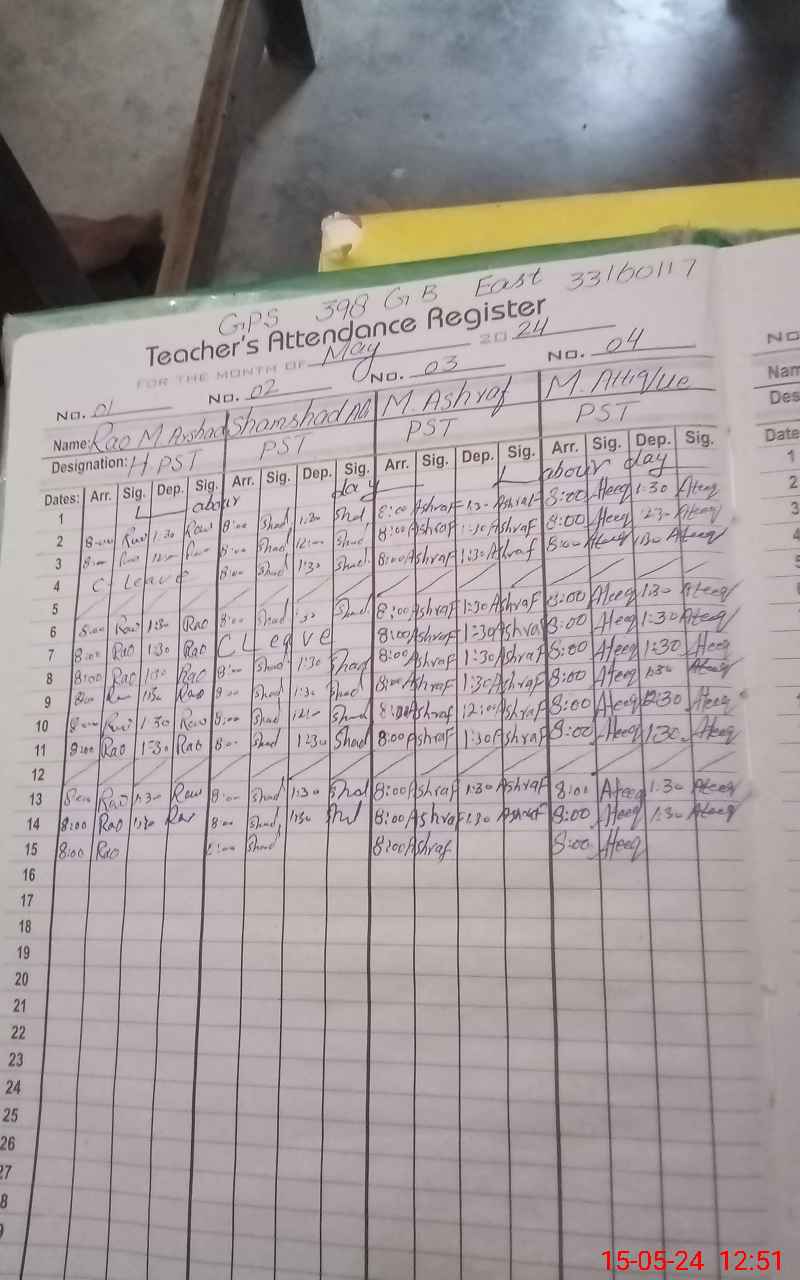 GPS 398 GB East 33160117
Teacher's Attendance Register
FOR THE MONTH OF May 2024
No. 01 No. 02 No. 03 No. 04
Name: Rao M Arshad Shamshad Ali M. Ashraf M. Attique
Designation: H PST PST PST PST
Dates: Arr. Sig. Dep. Sig. Arr. Sig. Dep. Sig. Arr. Sig. Dep. Sig. Arr. Sig. Dep. Sig.
1 Labour day Labour day
2 8:00 Rao 1:30 Rao 8:00 Shad 1:30 Shad 8:00 Ashraf 1:30 Ashraf 8:00 Ateeq 1:30 Ateeq
3 8:00 Rao 12:00 Rao 8:00 Shad 12:00 Shad 8:00 Ashraf Ashraf 8:00 Ateeq 12:30 Ateeq
4 C Leave 8:00 Shad 1:30 Shad 8:00 Ashraf 1:30 Ashraf 8:00 Ateeq 1:30 Ateeq
5
6 8:00 Rao 1:30 Rao 8:00 Shad Shad 8:00 Ashraf 1:30 Ashraf 8:00 Ateeq 1:30 Ateeq
7 8:00 Rao 1:30 Rao C Leave 8:00 Ashraf 1:30 Ashraf 8:00 Ateeq 1:30 Ateeq
8 8:00 Rao 1:30 Rao 8:00 Shad 1:30 Shad 8:00 Ashraf 1:30 Ashraf 8:00 Ateeq 1:30 Ateeq
9 8:00 Rao 1:30 Rao 8:00 Shad 1:30 Shad 8:00 Ashraf 1:30 Ashraf 8:00 Ateeq 1:30 Ateeq
10 8:00 Rao 1:30 Rao 8:00 Shad 12:00 Shad 8:00 Ashraf 12:00 Ashraf 8:00 Ateeq 12:30 Ateeq
11 8:00 Rao 1:30 Rao 8:00 Shad 1:30 Shad 8:00 Ashraf 1:30 Ashraf 8:00 Ateeq 1:30 Ateeq
12
13 8:00 Rao 1:30 Rao 8:00 Shad 1:30 Shad 8:00 Ashraf 1:30 Ashraf 8:00 Ateeq 1:30 Ateeq
14 8:00 Rao 1:30 Rao 8:00 Shad 1:30 Shad 8:00 Ashraf 1:30 Ashraf 8:00 Ateeq 1:30 Ateeq
15 8:00 Rao 8:00 Shad 8:00 Ashraf 8:00 Ateeq
16
17
18
19
20
21
22
23
24
25
26
27
8
9
No
Nam
Des
Date
1
2
3
4
5
15-05-24 12:51